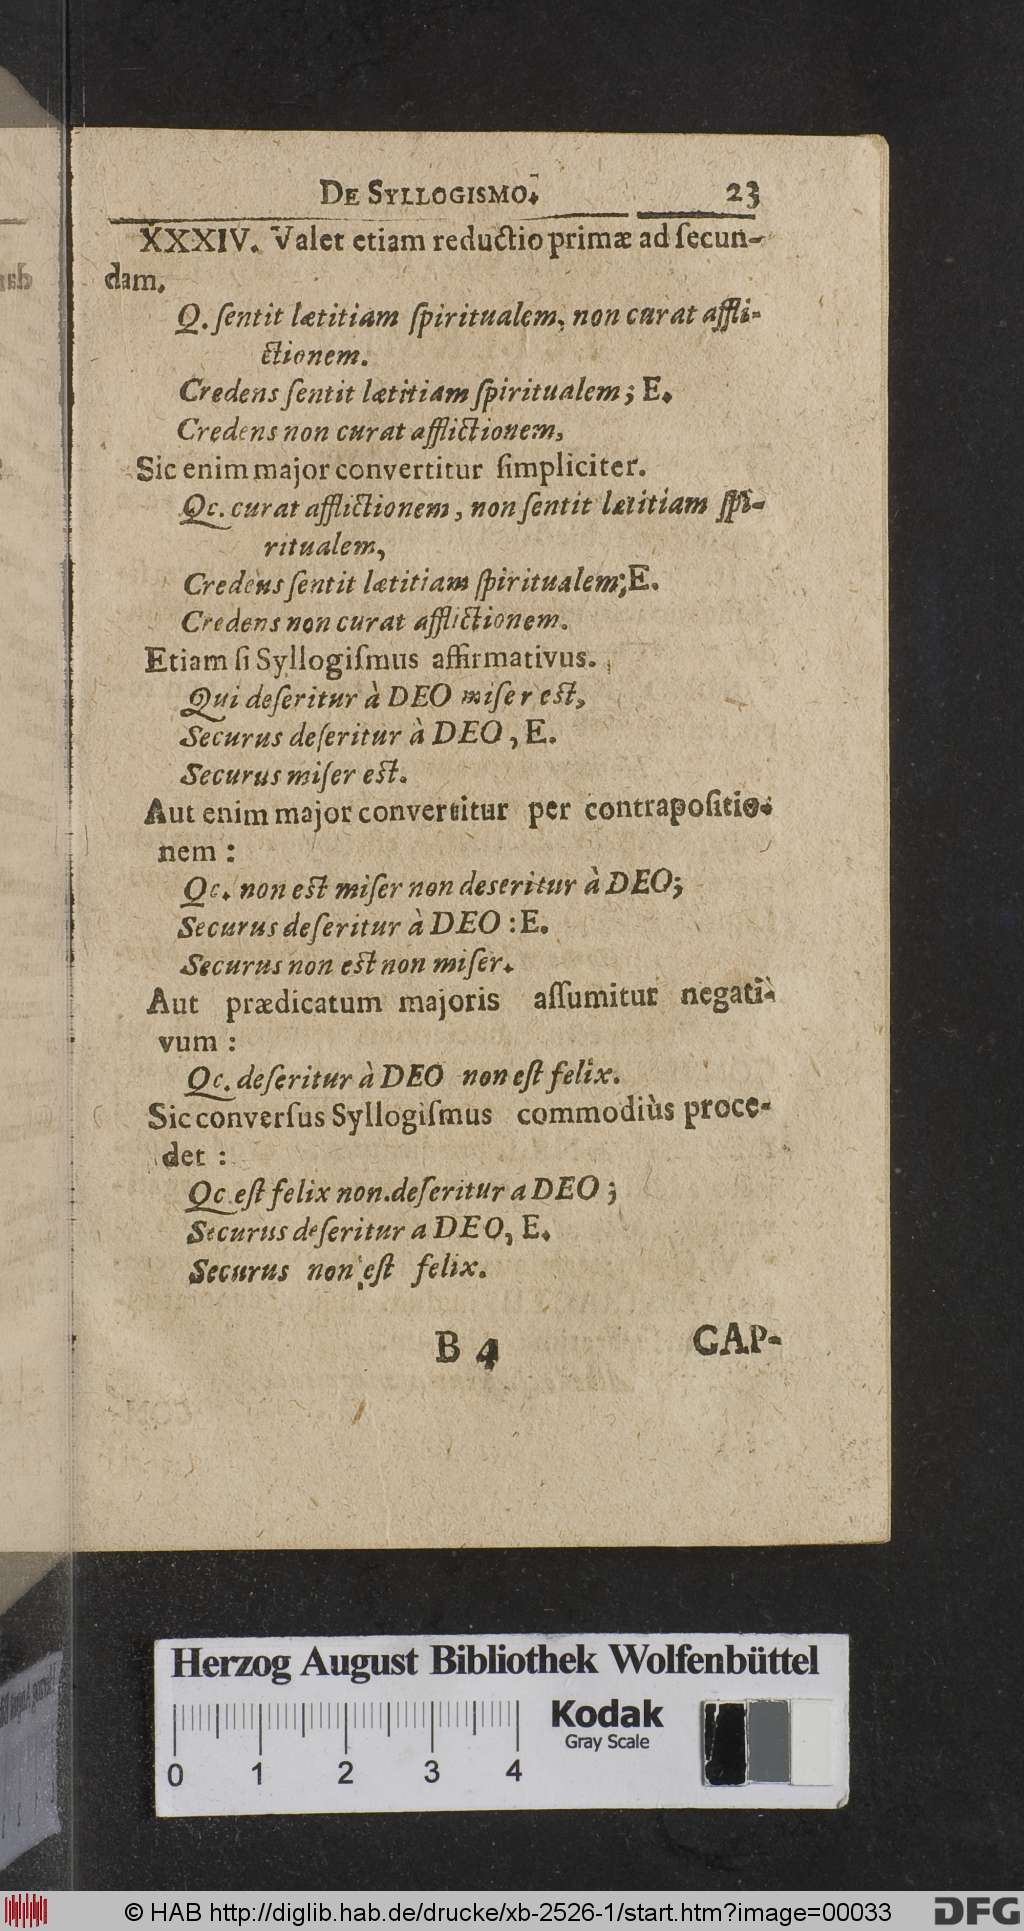 DE SYLLOGISMO. 23
XXXIV. Valet etiam reductio primæ ad ſecun-
dam.
Q. ſentit lætitiam ſpiritualem, non curat affli-
ctionem.
Credens ſentit lætitiam ſpiritualem; E.
Credens non curat afflictionem,
Sic enim major convertitur ſimpliciter.
Qc. curat afflictionem, non ſentit lætitiam ſpi-
ritualem,
Credens ſentit lætitiam ſpiritualem; E.
Credens non curat afflictionem.
Etiam ſi Syllogiſmus affirmativus.
Qui deſeritur à DEO miſer eſt,
Securus deſeritur à DEO, E.
Securus miſer eſt.
Aut enim major convertitur per contrapoſitio-
nem:
Qc. non eſt miſer non deseritur à DEO;
Securus deſeritur à DEO: E.
Securus non eſt non miſer.
Aut prædicatum majoris aſſumitur negati-
vum:
Qc. deſeritur à DEO non eſt felix.
Sic converſus Syllogiſmus commodiùs proce-
det:
Qc eſt felix non.deſeritur a DEO;
Securus deſeritur a DEO, E.
Securus non eſt felix.
B 4 CAP-
Herzog August Bibliothek Wolfenbüttel
Kodak
Gray Scale
0 1 2 3 4
© HAB http://diglib.hab.de/drucke/xb-2526-1/start.htm?image=00033
DFG